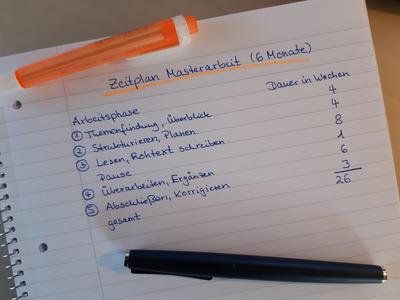 Zeitplan Masterarbeit (6 Monate)
Arbeitsphase Dauer in Wochen
① Themenfindung, Überblick 4
② Strukturieren, Planen 4
③ Lesen, Rohtext schreiben 8
Pause 1
④ Überarbeiten, Ergänzen 6
⑤ Abschließen, Korrigieren 3
gesamt 26